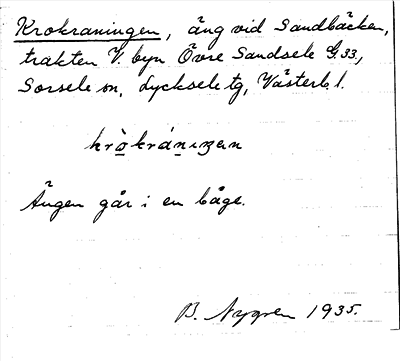 Krokraningen, äng vid Sandbäcken,
trakten V. byn Övre Sandsele G.33,
Sorsele sn, Lycksele tg, Västerb. l.
kròkrániŋen
Ängen går i en båge.
B. Nygren 1935.